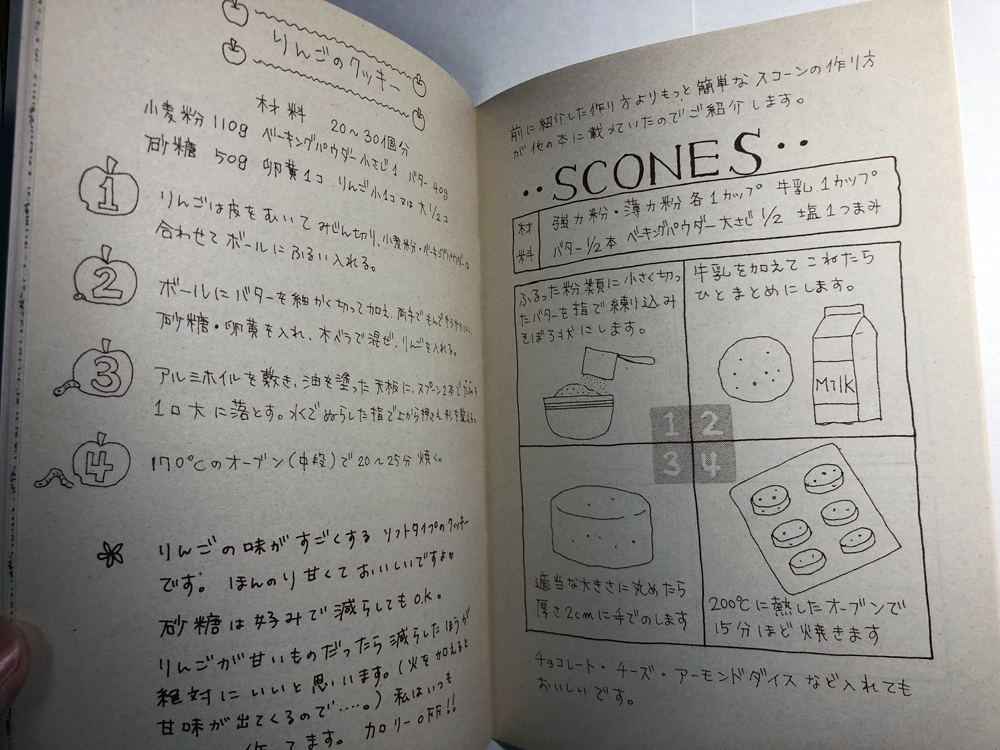 りんごのクッキー
材料 20~30個分
小麦粉110g ベーキングパウダー小さじ1 バター40g
砂糖 50g 卵黄1コ りんご小1コ又は大1/2コ
1
りんごは皮をむいてみじん切り、小麦粉・ベーキングパウダーは
合わせてボールにふるい入れる。
2
ボールにバターを細かく切って加え、両手で
砂糖・卵黄を入れ、木ベラで混ぜ、りんごを入れる。
3
アルミホイルを敷き、油を塗った天板に、スプーン2本で
1口大に落とす。水でぬらした指で上から押さえ形を整える。
4
170℃のオーブン(中段)で20~25分焼く。
りんごの味がすごくする ソフトタイプのクッキー
です。ほんのり甘くておいしいですよ♥
砂糖は好みで減らしてもO.K.
りんごが甘いものだったら減らしたほうが
絶対にいいと思います。(火を加えると
甘味が出てくるので……。)私はいつも
作ってます。カロリーo﹅!!
前に紹介した作り方よりもっと簡単なスコーンの作り方
が他の本に載っていたのでご紹介します。
・・SCONES・・
材料
強力粉・薄力粉 各1カップ 牛乳1カップ
バター1/2本 ベーキングパウダー大さじ1/2 塩1つまみ
ふるった粉類に小さく切っ
たバターを指で練り込み
そぼろ状にします。
牛乳を加えてこねたら
ひとまとめにします。
Milk
1 2
3 4
適当な大きさに丸めたら
厚さ2cmに手でのします
200℃に熱したオーブンで
15分ほど焼きます
チョコレート・チーズ・アーモンドダイスなど入れても
おいしいです。